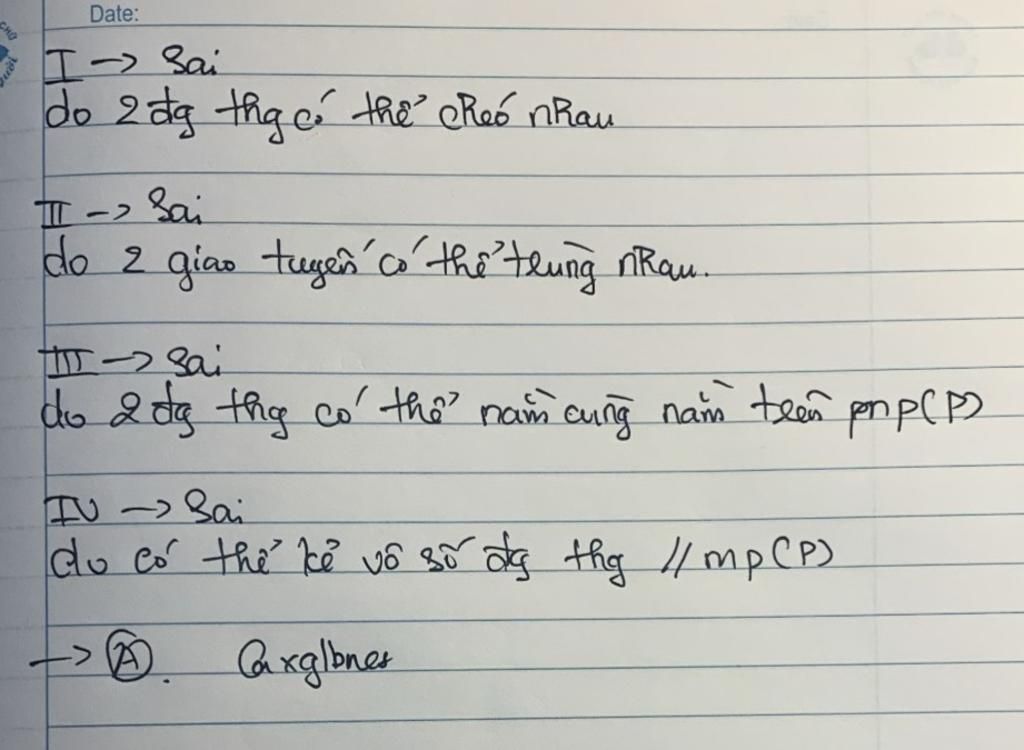 Date:
I -> Sai
do 2 đg thg có thể chéo nhau
II -> Sai
do 2 giao tuyến có thể trùng nhau.
III -> Sai
do 2 đg thg có thể nằm cùng nằm trên pnp(P)
IV -> Sai
do có thể kẻ vô số đg thg // mp(P)
-> A.